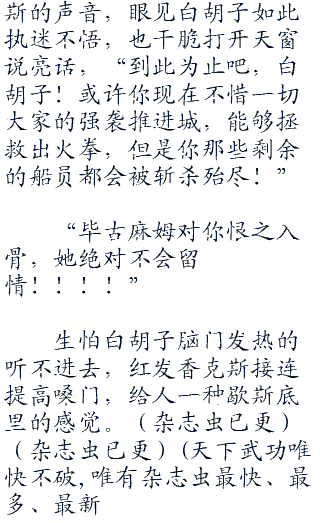 斯的声音，眼见白胡子如此
执迷不悟，也干脆打开天窗
说亮话，“到此为止吧，白
胡子！或许你现在不惜一切
大家的强袭推进城，能够拯
救出火拳，但是你那些剩余
的船员都会被斩杀殆尽！”
“毕古麻姆对你恨之入
骨，她绝对不会留
情！！！！”
生怕白胡子脑门发热的
听不进去，红发香克斯接连
提高嗓门，给人一种歇斯底
里的感觉。（杂志虫已更）
（杂志虫已更）(天下武功唯
快不破,唯有杂志虫最快、最
多、最新